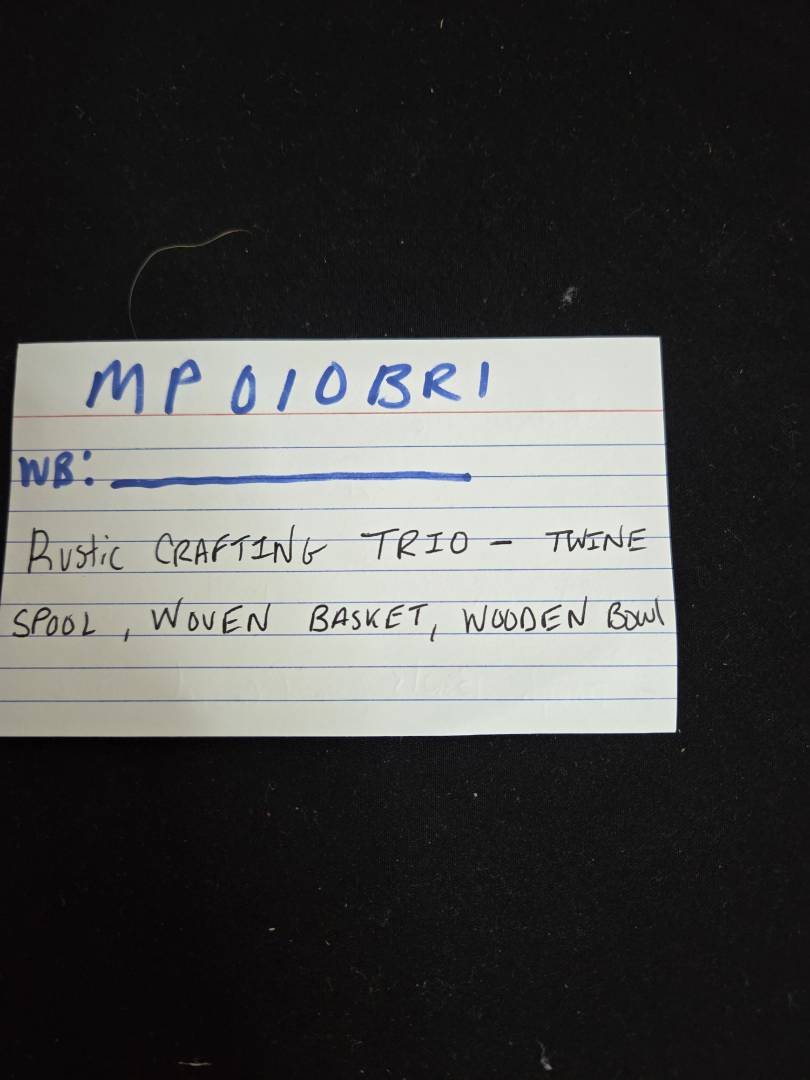 MP010BR1
WB:
Rustic CRAFTING TRIO - TWINE
SPOOL, WOVEN BASKET, WOODEN Bowl